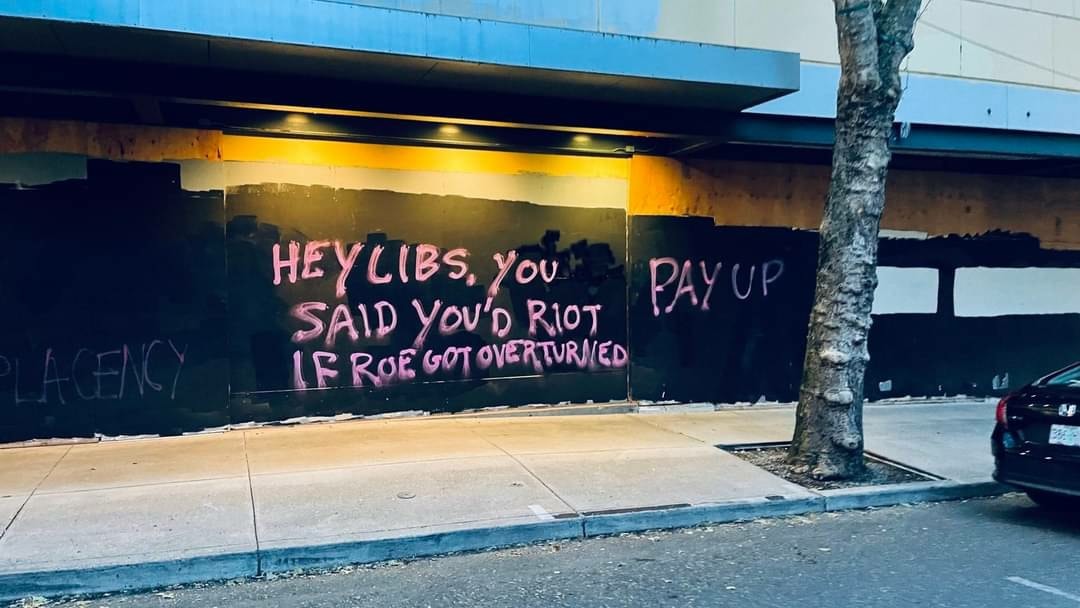 HEY LIBS, YOU
SAID YOU'D RIOT
IF ROE GOT OVERTURNED
PAY UP
PLACENCY